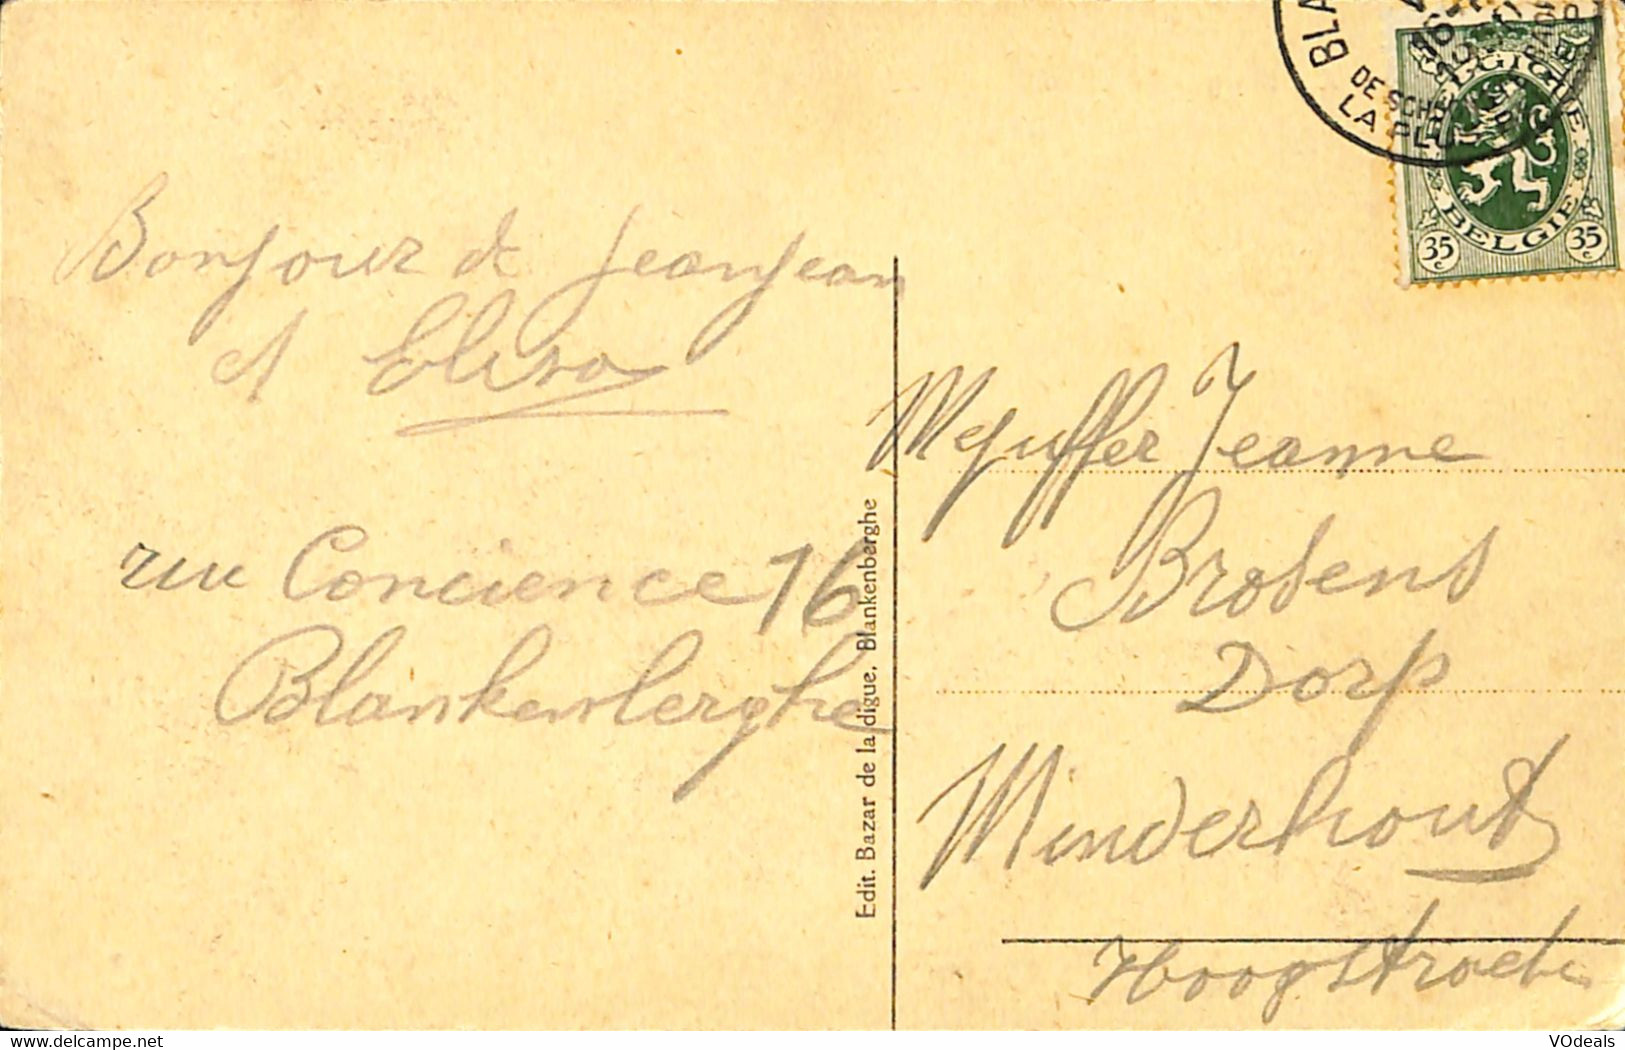 Bonjour de Jeanjean
et Elisa
rue Concience 16
Blankenberghe
Edit. Bazar de la digue. Blankenberghe
BLA
DE SCH
LA PL
BELGIQUE
BELGIE
35 c
35 c
Mejuffer Jeanne
Brosens
Dorp
Minderhout
Hoogstraeten
VOdeals